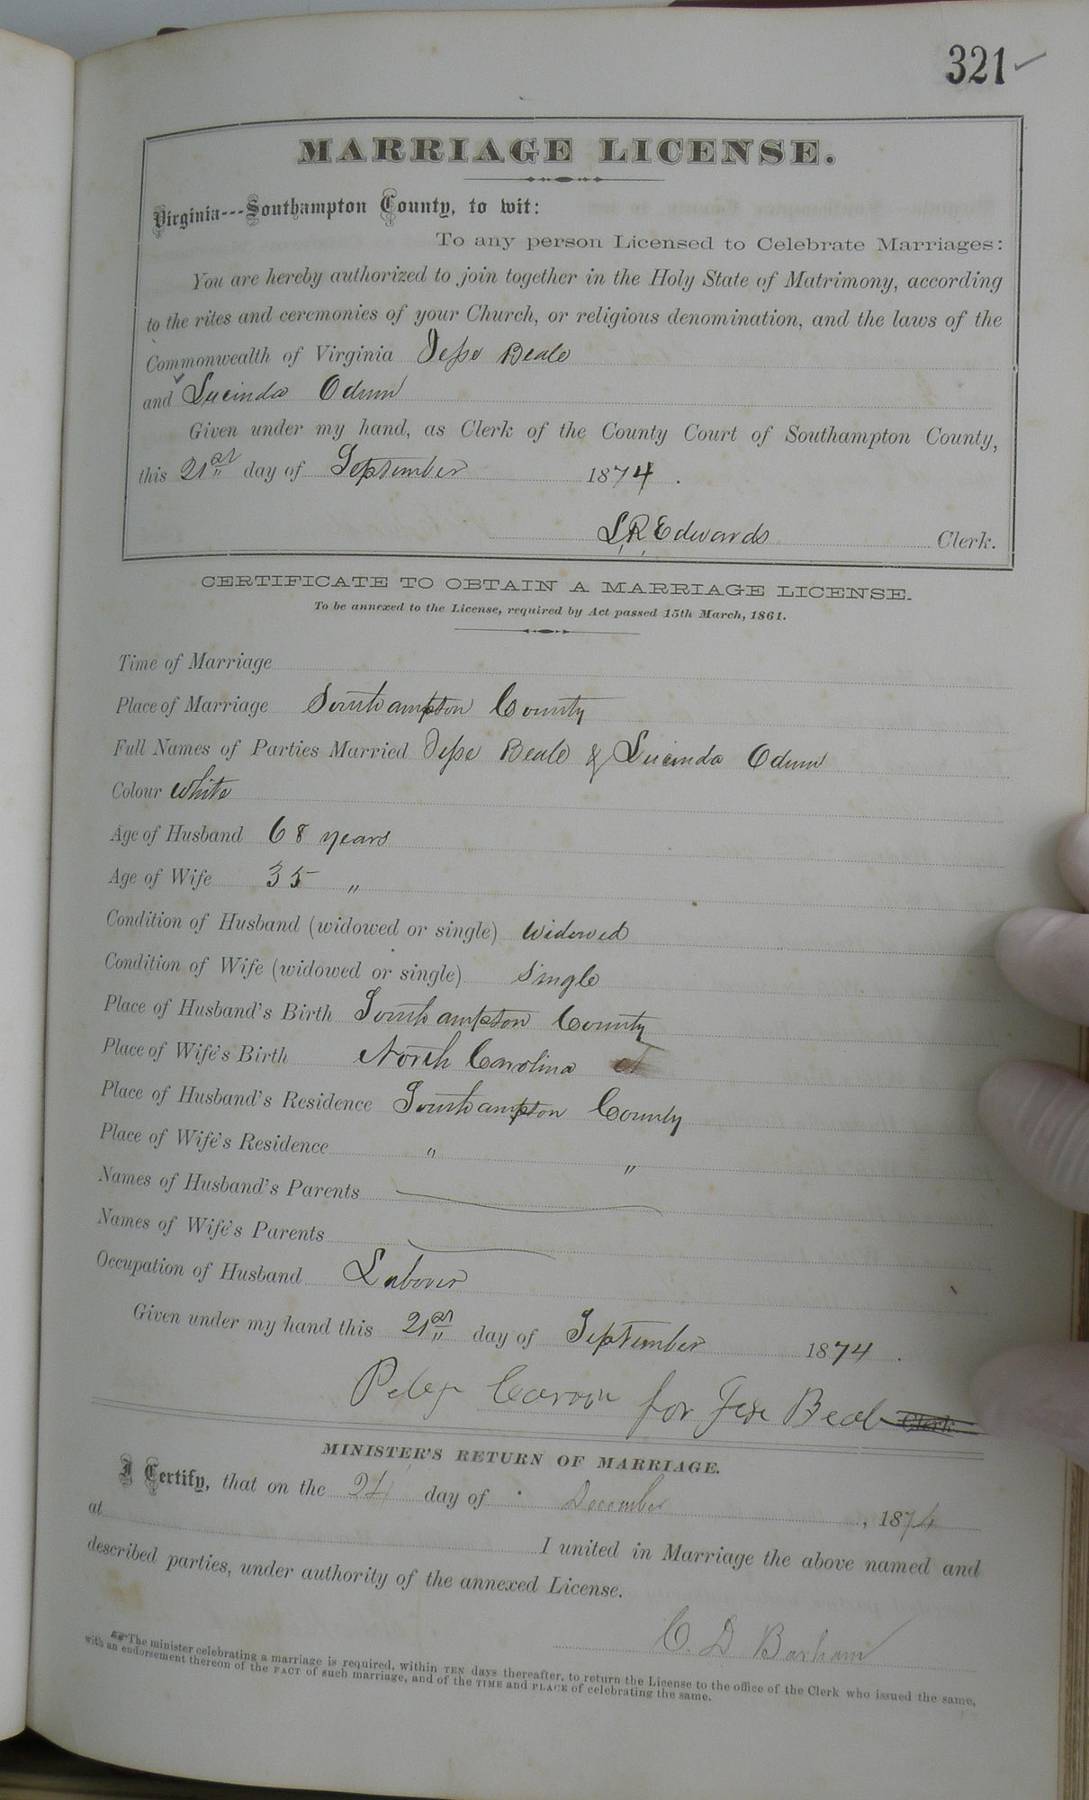 321
MARRIAGE LICENSE.
Virginia---Southampton County, to wit:
To any person Licensed to Celebrate Marriages:
You are hereby authorized to join together in the Holy State of Matrimony, according
to the rites and ceremonies of your Church, or religious denomination, and the laws of the
Commonwealth of Virginia Jesse Beale
and Lucinda Odum
Given under my hand, as Clerk of the County Court of Southampton County,
this 21st day of September 1874.
L. R. Edwards Clerk.
CERTIFICATE TO OBTAIN A MARRIAGE LICENSE.
To be annexed to the License, required by Act passed 15th March, 1861.
Time of Marriage
Place of Marriage Southampton County
Full Names of Parties Married Jesse Beale & Lucinda Odum
Colour white
Age of Husband 68 years
Age of Wife 35 "
Condition of Husband (widowed or single) widowed
Condition of Wife (widowed or single) single
Place of Husband's Birth Southampton County
Place of Wife's Birth North Carolina
Place of Husband's Residence Southampton County
Place of Wife's Residence " "
Names of Husband's Parents
Names of Wife's Parents
Occupation of Husband Laborer
Given under my hand this 21st day of September 1874.
for Jesse Beal Clerk.
MINISTER'S RETURN OF MARRIAGE.
I Certify, that on the 24 day of December, 1874
at I united in Marriage the above named and
described parties, under authority of the annexed License.
C. D. Barham
The minister celebrating a marriage is required, within TEN days thereafter, to return the License to the office of the Clerk who issued the same,
with an endorsement thereon of the FACT of such marriage, and of the TIME and PLACE of celebrating the same.